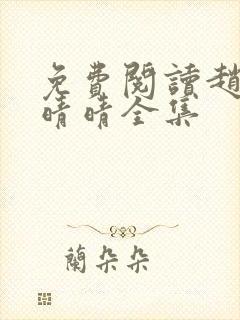 免費閱讀趙
晴晴全集
蘭朵朵